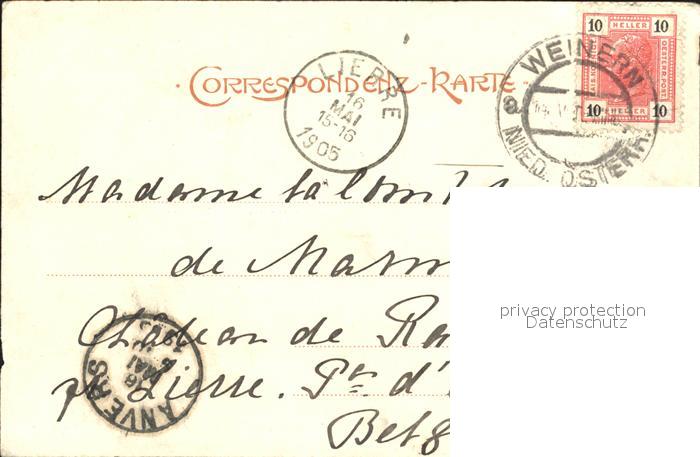 CORRESPONDENZ-KARTE
10 HELLER 10
10 HELLER 10
WEINERN
NIED. ÖSTERR.
LIERRE
16
MAI
15-16
1905
Madame la Comt
de Marn
Château de
pr Lierre. Pce d'
Belg
ANVERS
16
MAI
privacy protection
Datenschutz